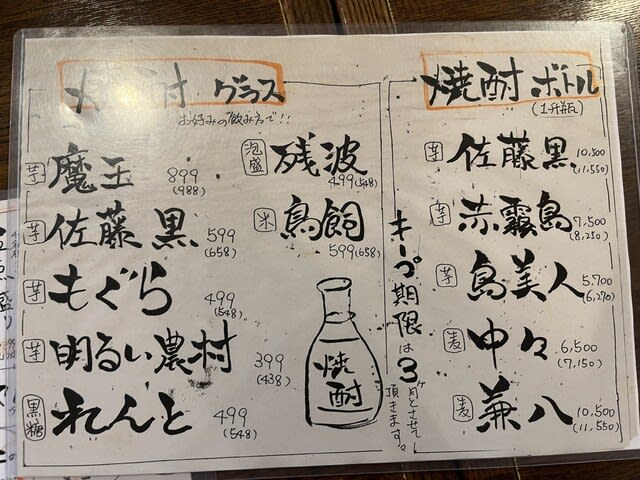 焼酎 グラス
お好みの飲み方で!!
芋 魔王 899
(988)
芋 佐藤 黒 599
(658)
芋 もぐら 499
(548)
芋 明るい農村 399
(438)
黒糖 れんと 499
(548)
泡盛 残波
499(548)
米 鳥飼
599(658)
焼酎
キープ期限は3ヶ月とさせて
頂きます。
焼酎ボトル
(1升瓶)
芋 佐藤黒 10,500
(11,550)
芋 赤霧島 7,500
(8,250)
芋 島美人 5,700
(6,270)
麦 中々 6,500
(7,150)
麦 兼八 10,500
(11,550)